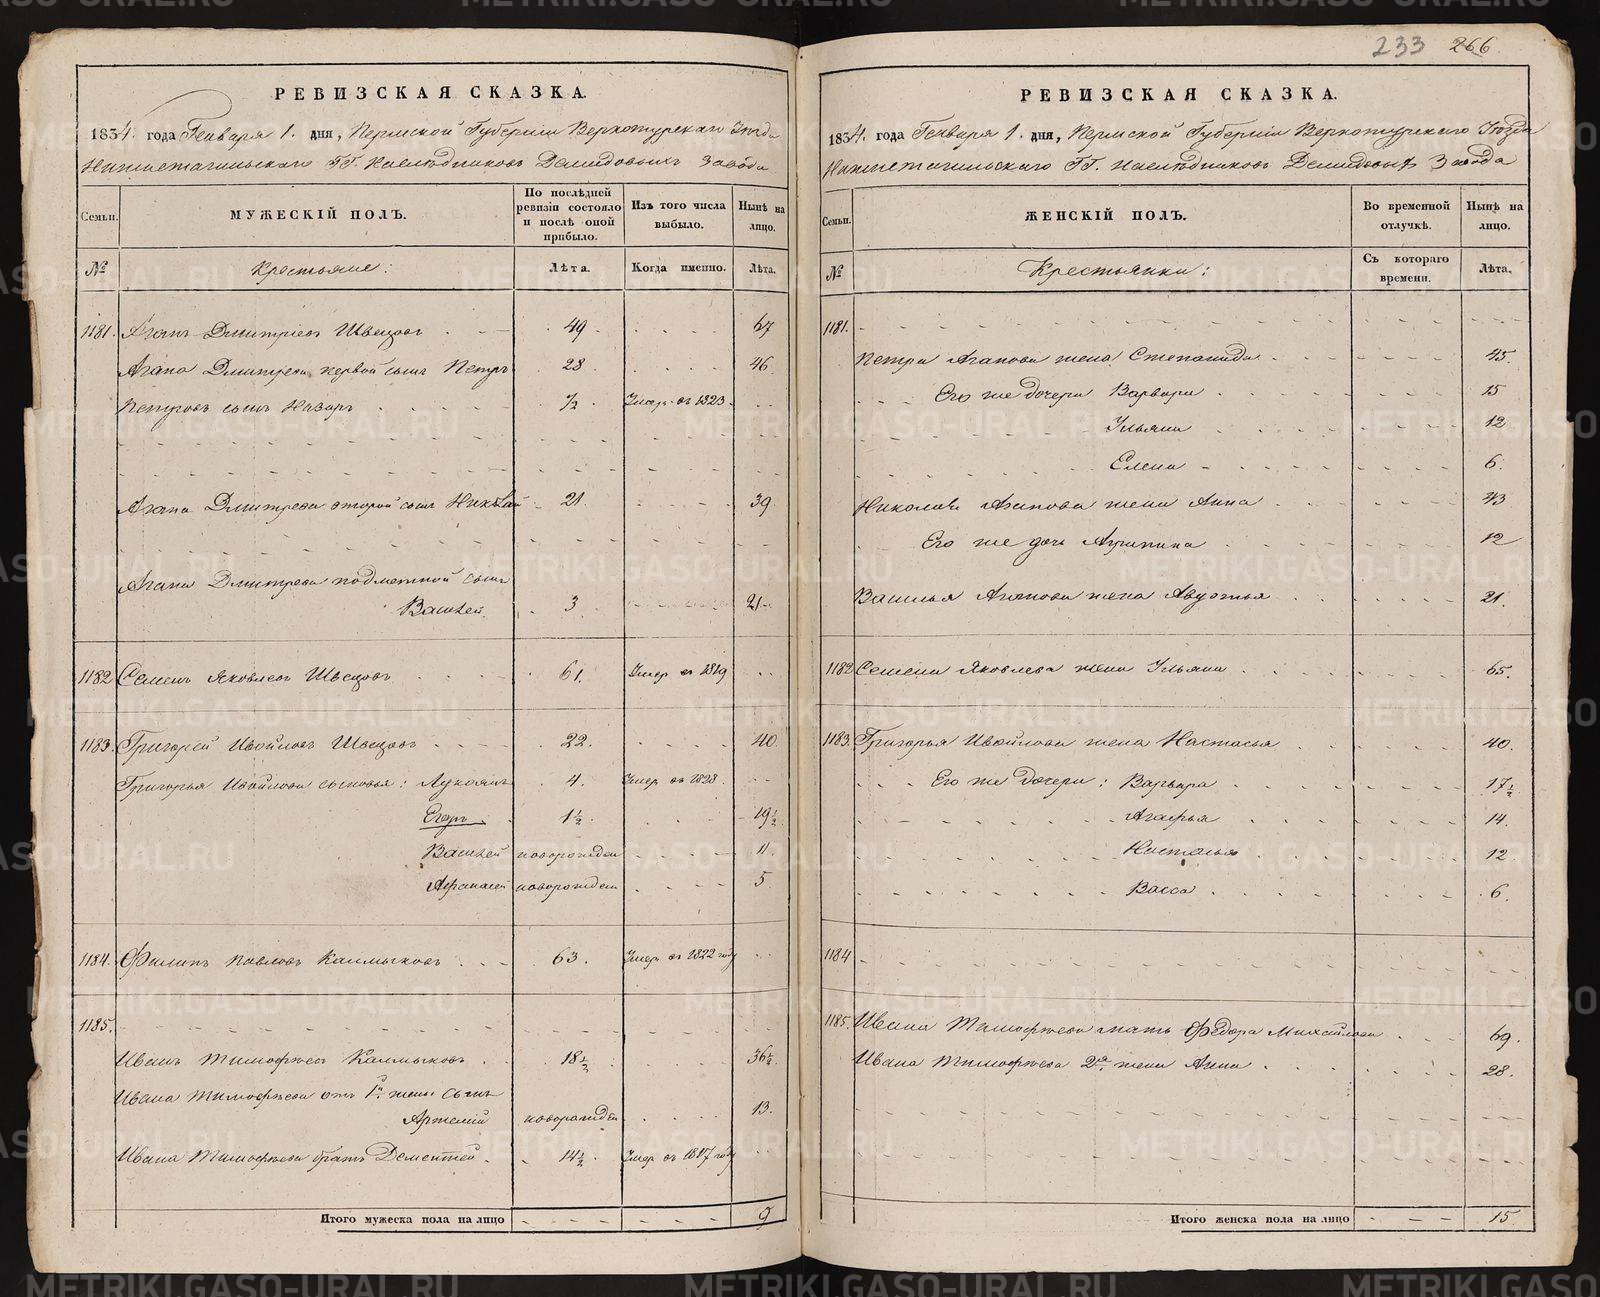 233 266
РЕВИЗСКАЯ СКАЗКА.
1834. года Генваря 1. дня, Пермской Губернии Верхотурскаго Уѣзда
Нижнетагильскаго ГГ. Наслѣдниковъ Демидовыхъ Завода
Семьи.
МУЖЕСКІЙ ПОЛЪ.
По послѣдней ревизіи состояло и послѣ оной прибыло.
Изъ того числа выбыло.
Нынѣ на лицо.
№ Крестьяне: Лѣта. Когда именно. Лѣта.
1181. Агапъ Дмитріевъ Швецовъ 49 67
Агапа Дмитрева первой сынъ Петръ 28 46
Петровъ сынъ Назаръ ½ Умер. въ 1823.
Агапа Дмитрева второй сынъ Николай 21 39
Агапа Дмитрева подметной сынъ
Василей. 3 21
1182 Семенъ Яковлевъ Швецовъ 61. Умер въ 1819
1183. Григорей Ивойловъ Швецовъ 22. 40
Григорья Ивойлова сыновья: Лукоянъ 4. Умер въ 1828.
Егоръ 1½. 19½
Василей новорожден 11
Афанасей новорожден 5
1184. Филипъ Павловъ Калмыковъ 63. Умеръ въ 1822 году
1185.
Иванъ Тимофѣевъ Калмыковъ 18½ 36½
Ивана Тимофѣева отъ 1й. жены сынъ
Артемій новорожден 13.
Ивана Тимофѣева братъ Дементей 14½ Умер въ 1817 году
Итого мужеска пола на лицо 9
РЕВИЗСКАЯ СКАЗКА.
1834. года Генваря 1. дня, Пермской Губерніи Верхотурскаго Уѣзда
Нижнетагильскаго ГГ. Наслѣдниковъ Демидовыхъ Завода
Семьи.
ЖЕНСКІЙ ПОЛЪ.
Во временной отлучкѣ.
Нынѣ на лицо.
№ Крестьянки: Съ котораго времени. Лѣта.
1181.
Петра Агапова жена Степанида 45.
Его же дочери Варвара 15
Ульяна 12
Елена 6.
Николая Агапова жена Анна 43
Его же дочь Агрипина 12
Василья Агапова жена Авдотья 21.
1182 Семена Яковлева жена Ульяна 65.
1183. Григорья Ивойлова жена Настасья 40.
Его же дочери: Варвара 17½
Агафья 14.
Настасья 12
Васса 6.
1184
1185. Ивана Тимофѣева мать Федора Михайлова 69.
Ивана Тимофѣева 2я. жена Анна 28.
Итого женска пола на лицо 15
METRIKI.GASO-URAL.RU